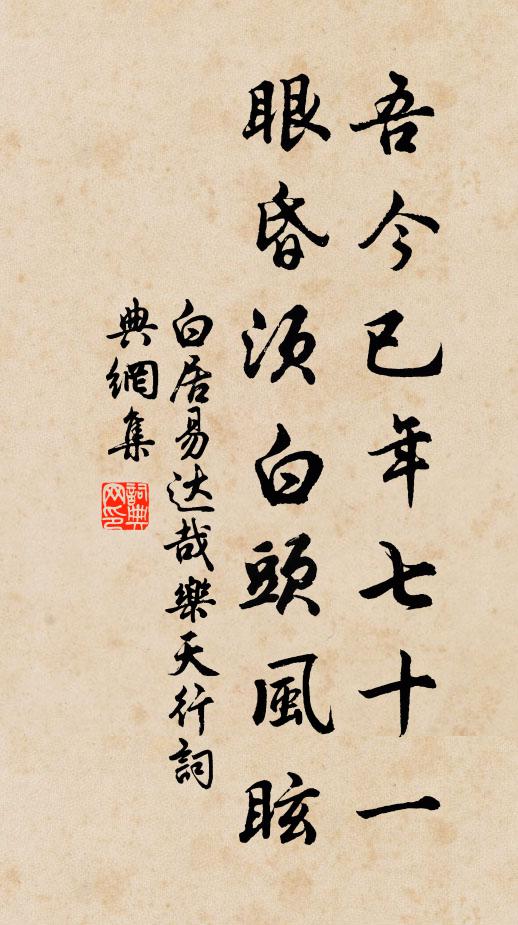 吾今已年七十一
眼昏须白頭風眩
白居易达哉樂天行詞
典網集
詞典网印